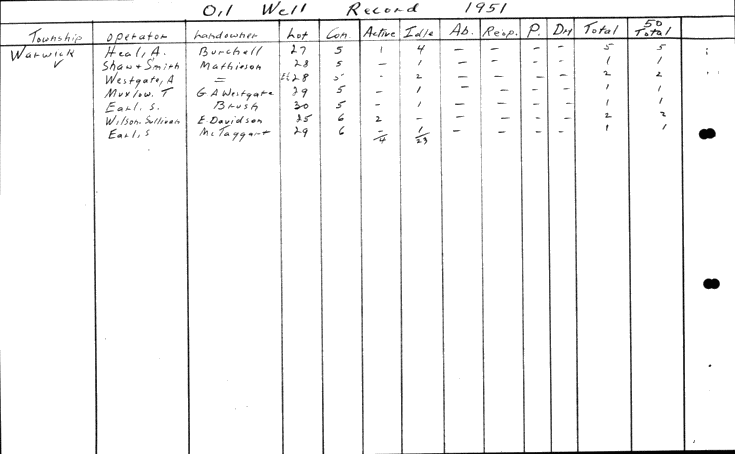 Oil Well Record 1951
Township Operator Landowner Lot Con. Active Idle Ab. Reop. P. Dry Total 50 Total
Warwick Heal, A. Burchell 27 5 1 4 — — — — 5 5
Shaw & Smith Mathieson 28 5 — 1 — — — — 1 1
Westgate, A = E½ 28 5 - 2 — — — — 2 2
Muxlow. T G A Westgate 29 5 — 1 — — — — 1 1
Earl. S. Brush 30 5 — 1 — — — — 1 1
Wilson. Sullivan E. Davidson 25 6 2 — — — — — 2 2
Earl. S McTaggart 29 6 — 1 — — — — 1 1
4 23